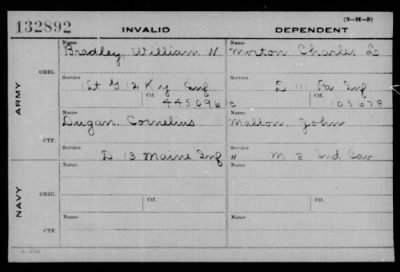 132892 INVALID DEPENDENT (3-H-5)
Name Name
Bradley, William N. Morton Charles L
ORIG. Service Service
1st G 12 Ky Inf D 111 Pa Inf
Ctf. 445096 Ctf. 105679
ARMY
Name Name
Dugan Cornelius Mallon John
CTF. Service Service
D 13 Maine Inf M 8 Ind Cav
NAVY
Name Name
ORIG. Service Service
Ctf. Ctf.
Name Name
CTF. Service Service